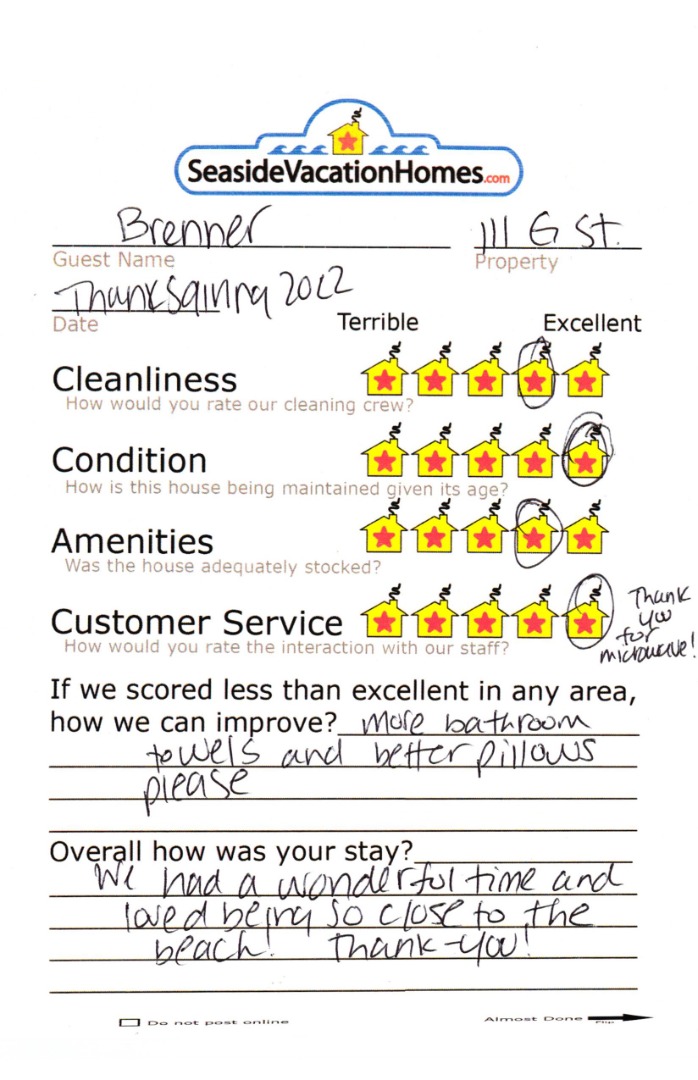 SeasideVacationHomes.com
Brenner 111 G St.
Guest Name Property
Thanksgiving 2022
Date
Terrible Excellent
Cleanliness
How would you rate our cleaning crew?
Condition
How is this house being maintained given its age?
Amenities
Was the house adequately stocked?
Customer Service
How would you rate the interaction with our staff?
Thank
you
for
microwave!
If we scored less than excellent in any area,
how we can improve? more bathroom
towels and better pillows
please
Overall how was your stay?
We had a wonderful time and
loved being so close to the
beach! Thank-you!
Do not post online Almost Done
Flip